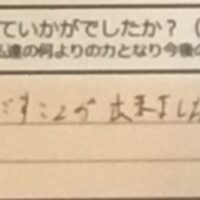 ていかがでしたか？（
私達の何よりの力となり今後の
すことが出来ました